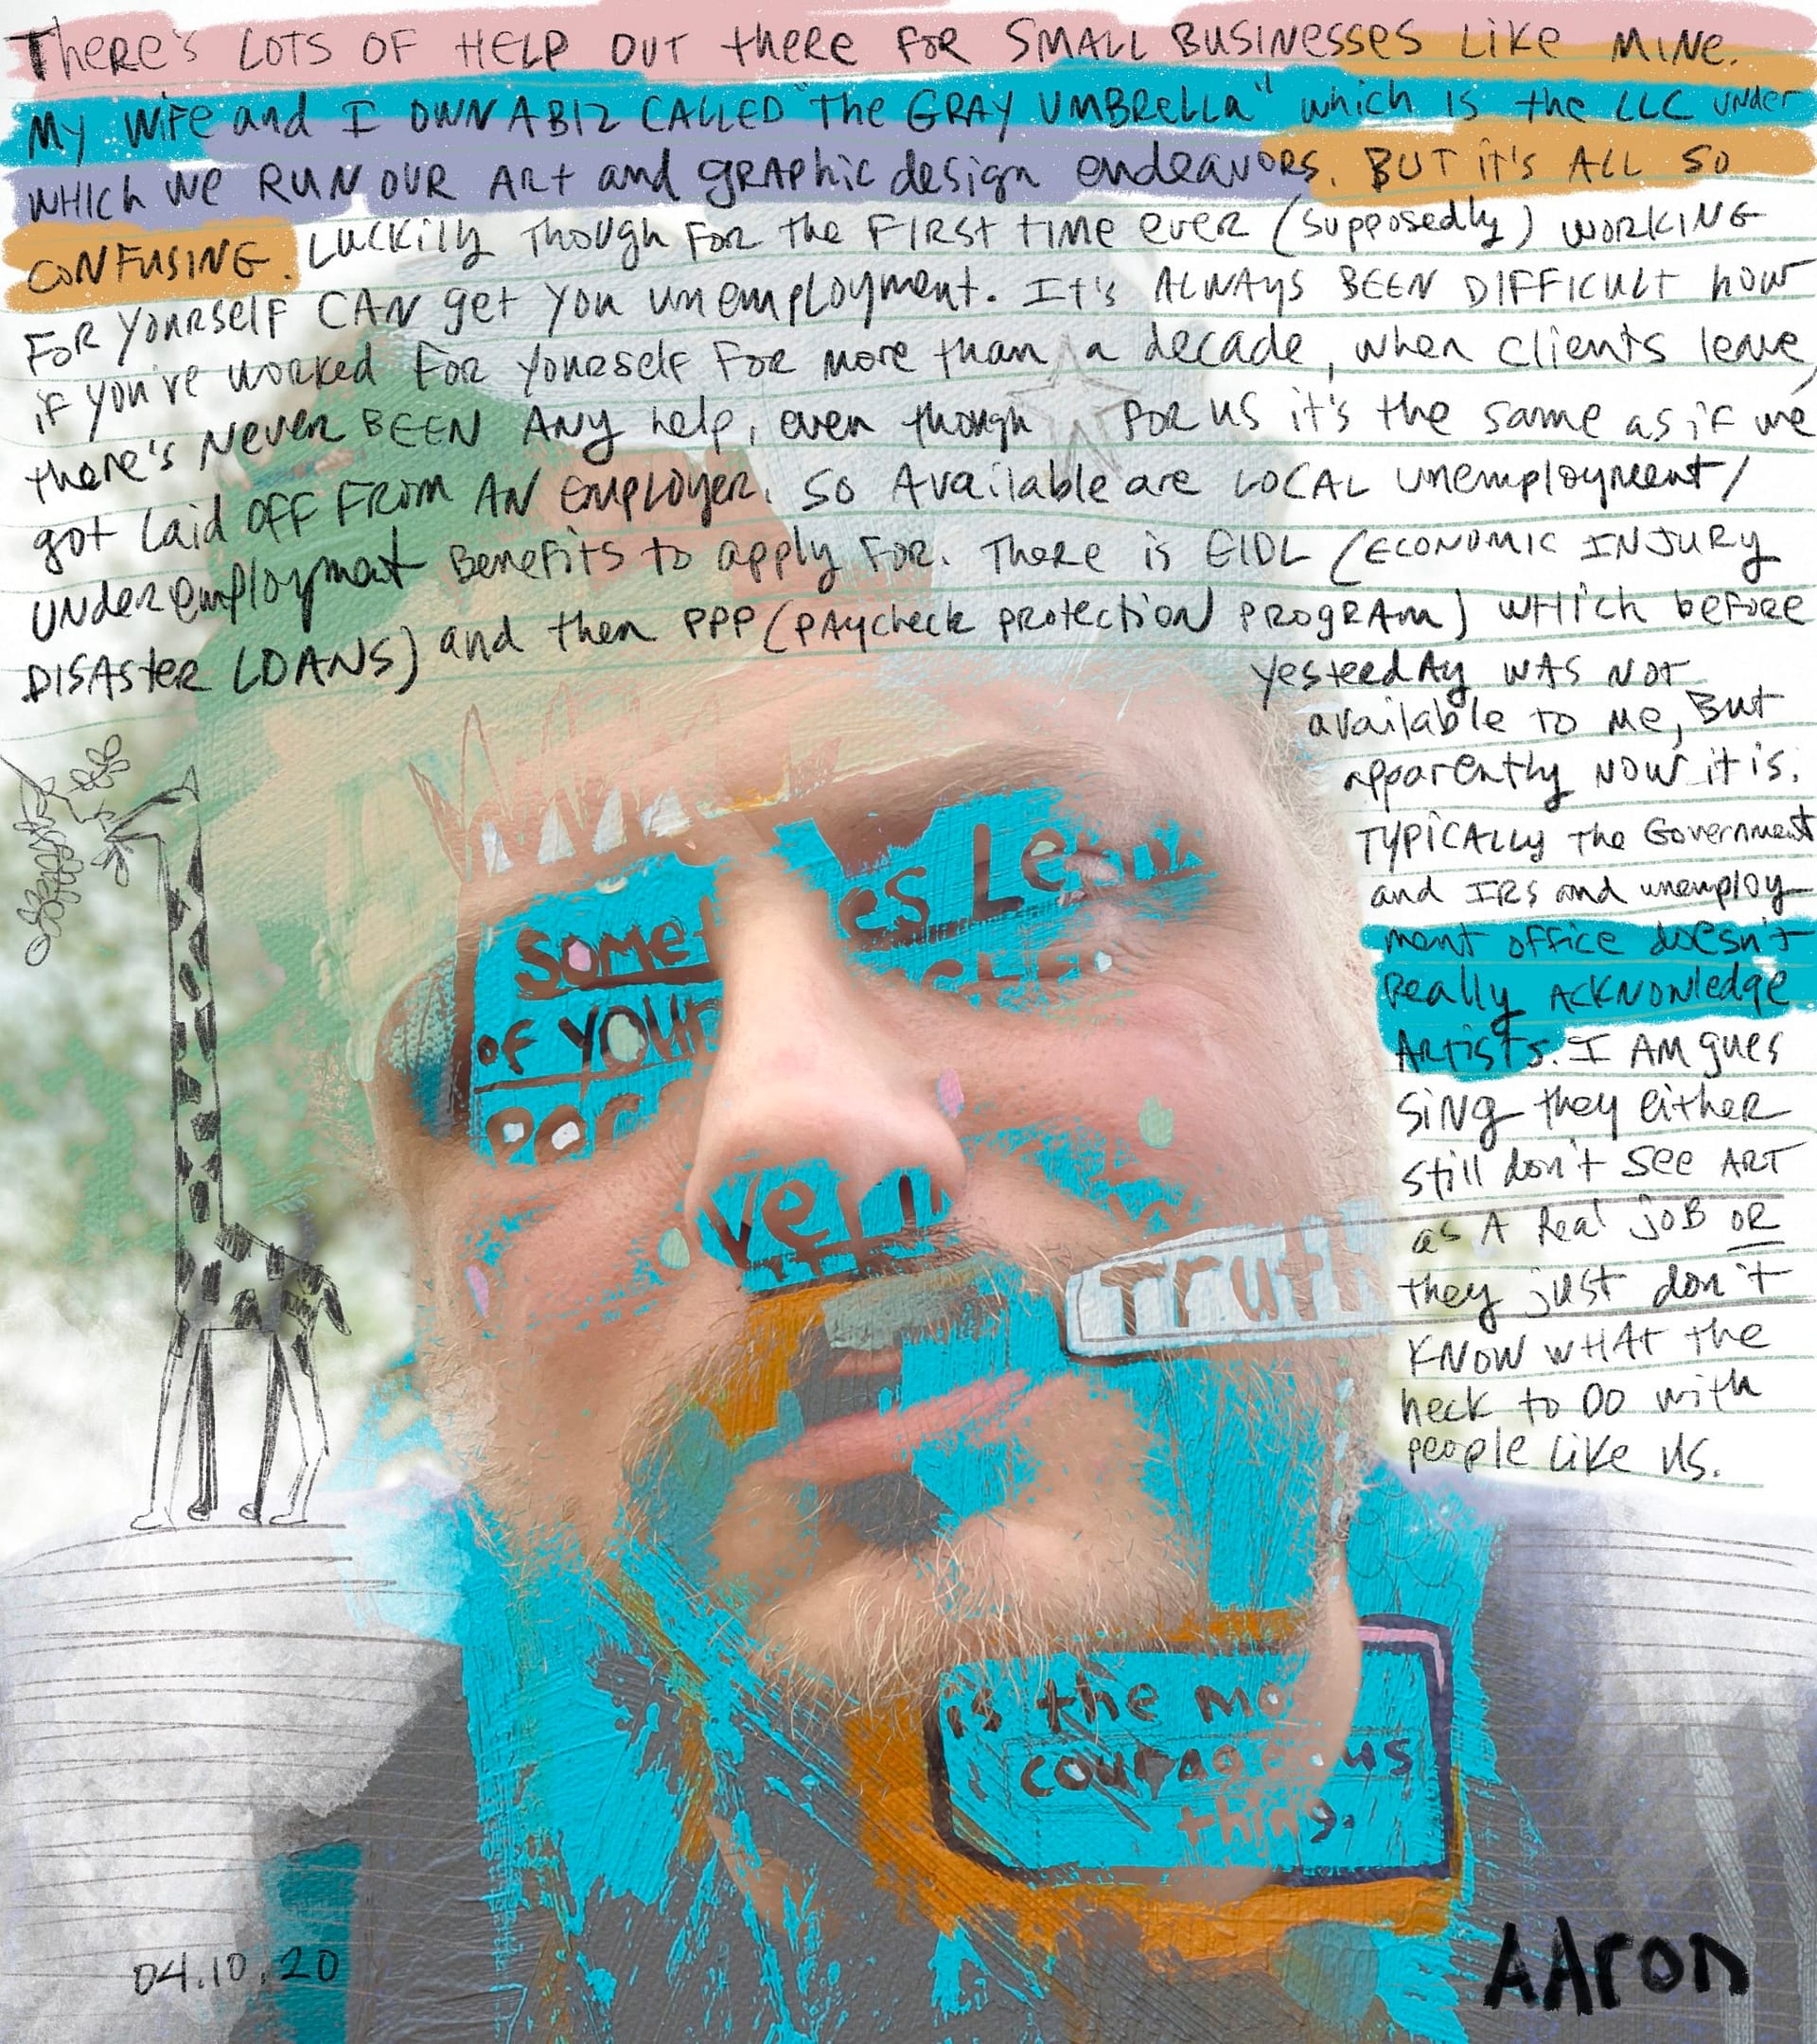 There's LOTS OF HELP OUT there FOR SMALL BUSINESSES LIKE MINE.
MY WIFE and I OWN A BIZ CALLED "The GRAY UMBRELLA" which is the LLC under
WHICH WE RUN OUR ART and GRAPHIC design endeavors. BUT it's ALL SO
CONFUSING. LUCKILY Though FOR the FIRST time ever (supposedly) WORKING
FOR YOURSELF CAN get you unemployment. It's ALWAYS BEEN DIFFICULT how
if you've worked for yourself for more than a decade, when clients leave,
there's Never BEEN ANY help, even though FOR US it's the same as if we
got laid off FROM AN EMPLOYER. SO Available are LOCAL unemployment/
UNDEREMPLOYMENT BENEFITS to apply FOR. There is EIDL (ECONOMIC INJURY
DISASTER LOANS) and then PPP (PAYCHECK PROTECTION PROGRAM) WHICH BEFORE
yesterday WAS NOT
available to me, But
apparently NOW it is.
TYPICALLY The Government
and IRS and unemploy-
ment office doesn't
Really ACKNOWledge
Artists. I AM gues
sing they either
still don't see ART
as A Real JOB OR
they just don't
KNOW WHAT the
heck to DO with
people like us.
SOME es Le
of YOUR
ve
Truth
is the mo
courageous
thing.
04.10.20
AAron